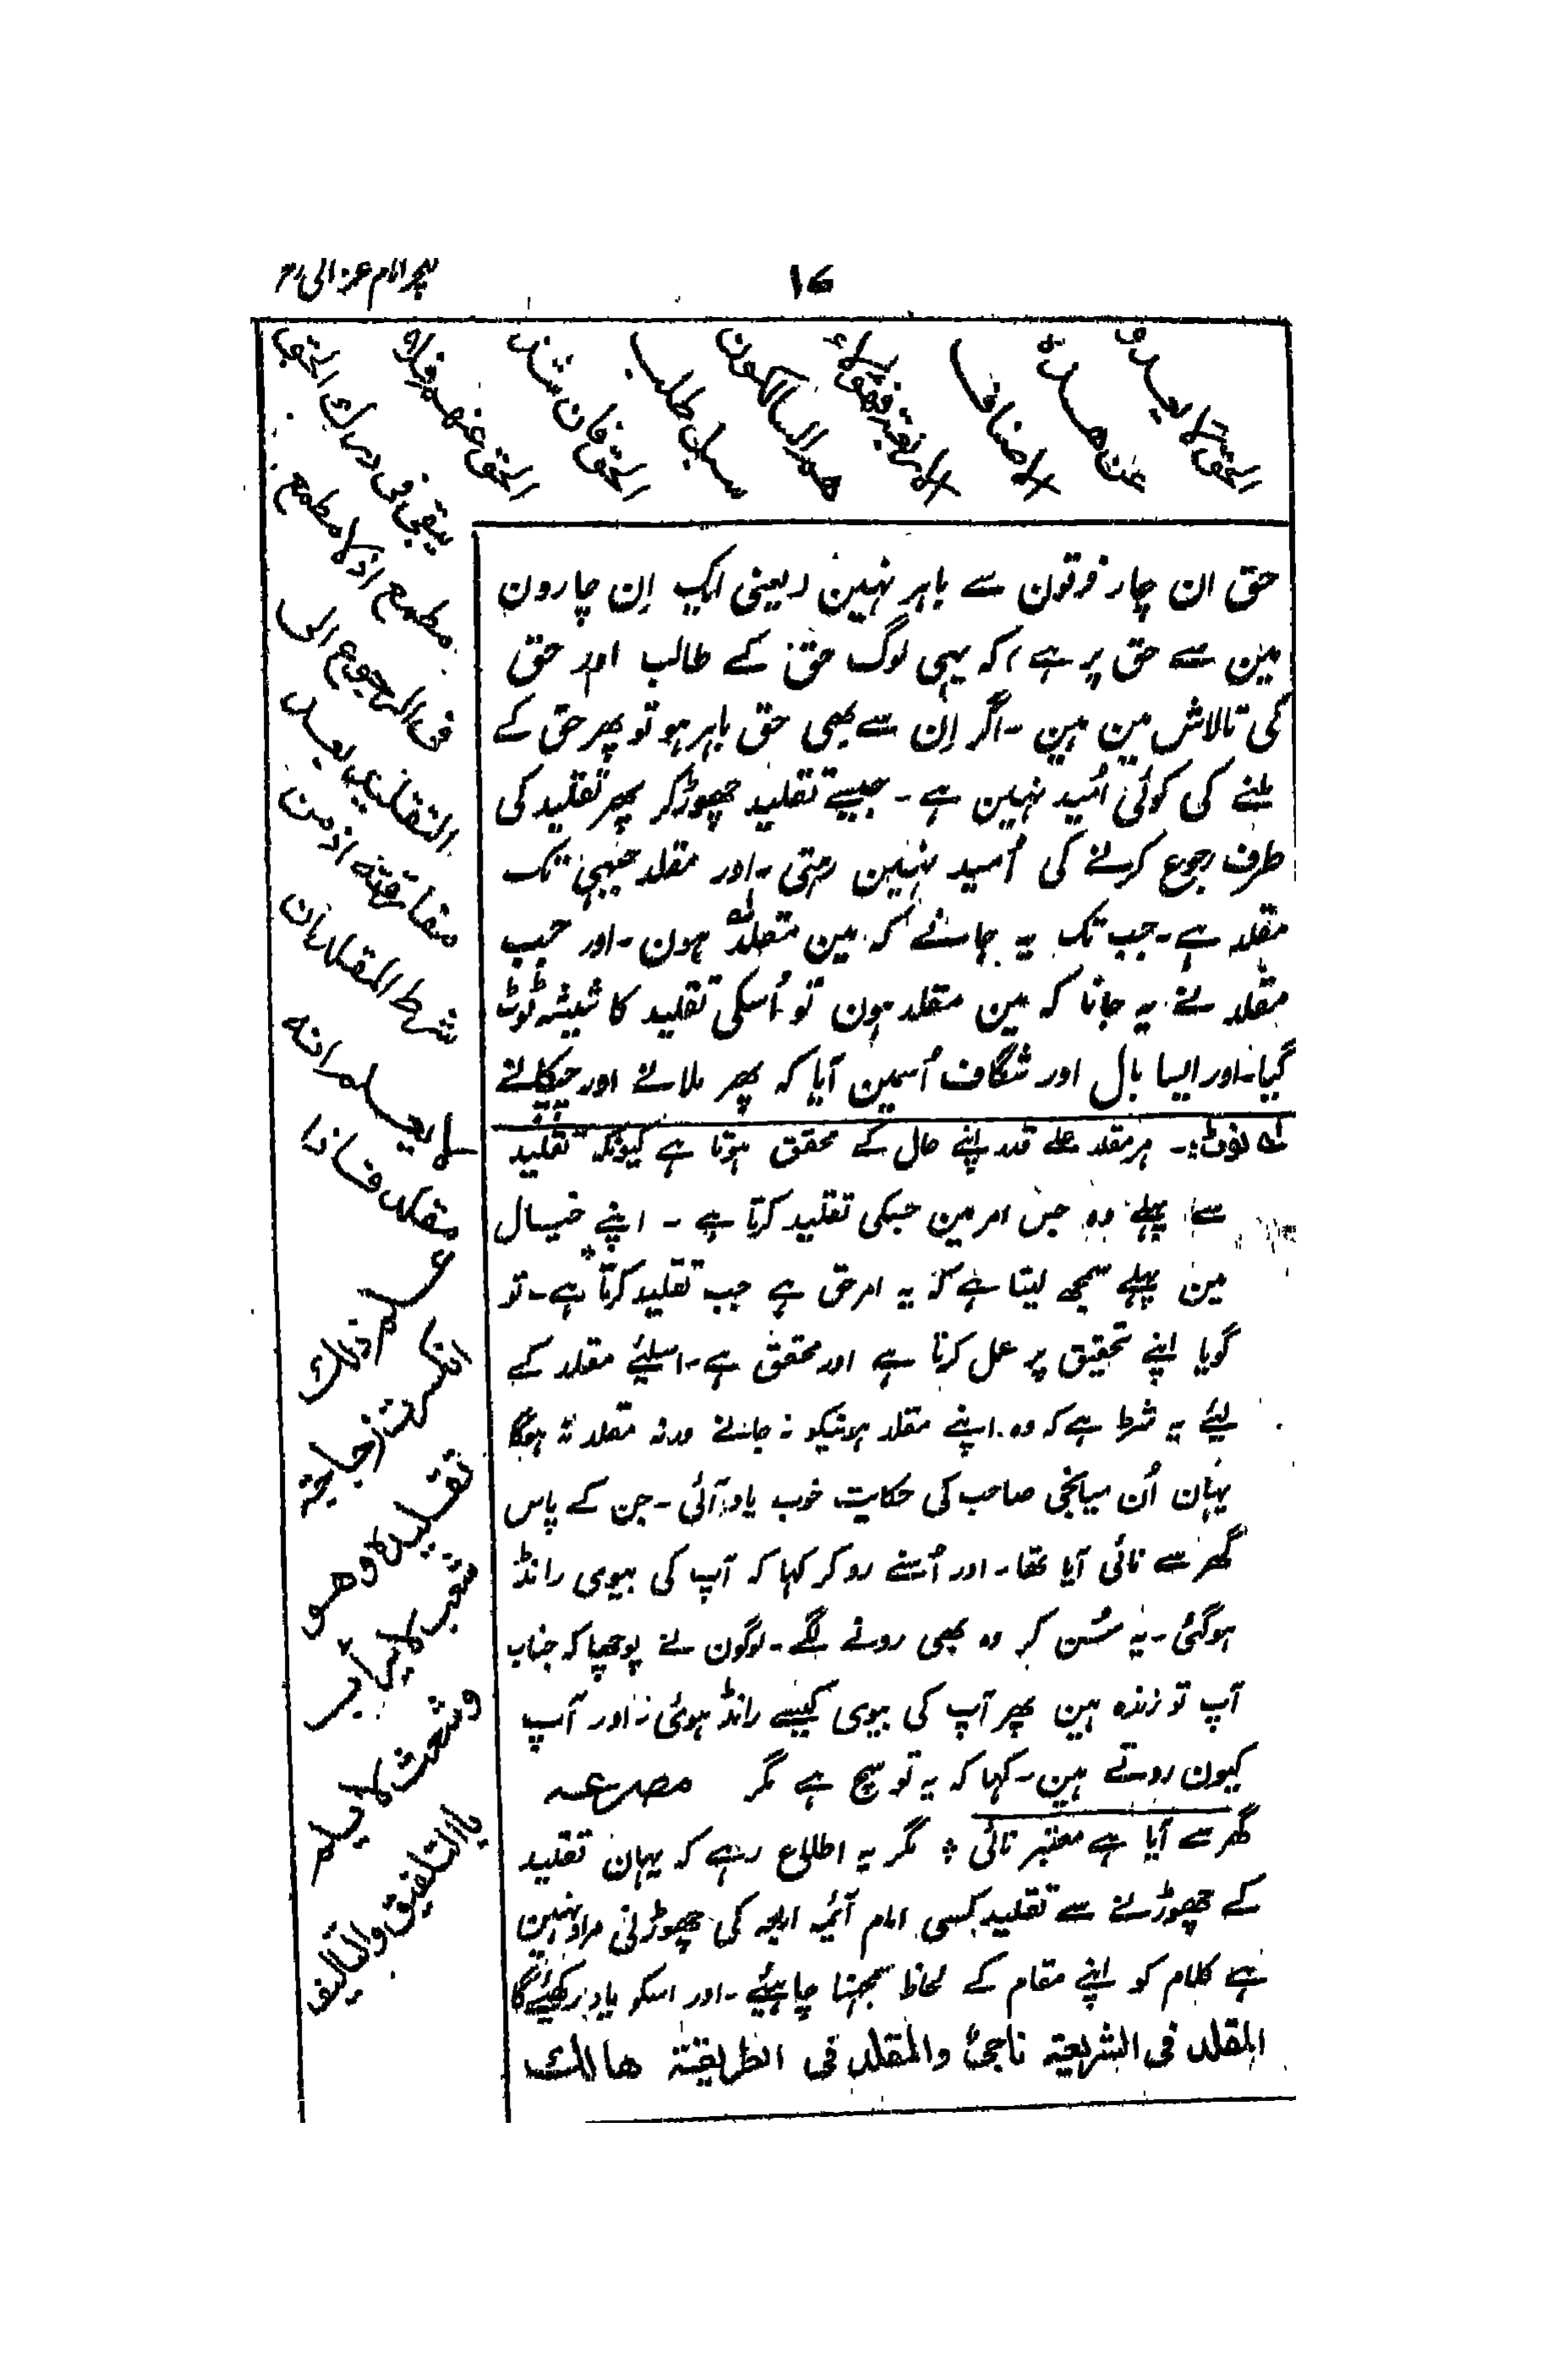 ۱۶
لکچر امام غزالی رح
الحق لا یعدو
عن هذه
الاصناف
الاربعة فهؤلاء
هم السالکون
سبل طلب
الحق فان شذ
الحق عنهم فلا
یبقی فی درک الحق
مطمع اذ لا مطمع
فی الرجوع الی
التقلید بعد
مفارقته اذ من
شرط المقلد ان
لا یعلم انه
مقلد فاذا
علم ذلک
انکسرت زجاجة
تقلیده وهو
شعب لا یرأب
وشعث لا یلم
بالتلفیق والتألیف
حق ان چار فرقون سے باہر نہین (یعنی ایک اِن چارون
مین سے حق پر ہے) کہ یہی لوگ حق کے طالب اور حق
کی تالاش مین ہین - اگر اِن سے بھی حق باہر ہو تو پھر حق کے
ملنے کی کوئی اُمید نہین ہے - جیسے تقلید چھوڑ کر پھر تقلید کی
طرف رجوع کرنے کی اُمید نہین رہتی - اور مقلد جبھی تک
مقلد ہے - جب تک یہ جانے کہ مین مقلد لہ ہون - اور جب
مقلد نے یہ جانا کہ مین مقلد ہون تو اُسکی تقلید کا شیشہ ٹوٹ
گیا - اور ایسا بال اور شگاف اُسمین آیا کہ پھر ملانے اور چپکانے
لہ نوٹ :- ہر مقلد علے قدر اپنے حال کے محقق ہوتا ہے کیونکہ تقلید
سے پہلے وہ جس امر مین جسکی تقلید کرتا ہے - اپنے خیال
مین پہلے سمجھ لیتا ہے کہ یہ امر حق ہے جب تقلید کرتا ہے - تو
گویا اپنے تحقیق پر عمل کرتا ہے اور محقق ہے - اسلیئے مقلد کے
لیئے یہ شرط ہے کہ وہ اپنے مقلد ہونیکو نہ جانے ورنہ مقلد نہ ہوگا
یہان اُن میانجی صاحب کی حکایت خوب یاد آئی - جن کے پاس
گھر سے نائی آیا تھا - اور اُسنے رو کر کہا کہ آپ کی بیوی رانڈ
ہوگئی - یہ سُن کر وہ بھی رونے لگے - لوگون نے پوچھا کہ جناب
آپ تو زندہ ہین پھر آپ کی بیوی کیسے رانڈ ہوئی - اور آپ
کیون روتے ہین - کہا کہ یہ تو سچ ہے مگر مصرعہ
گھر سے آیا ہے معتبر نائی ؞ مگر یہ اطلاع رہے کہ یہان تقلید
کے چھوڑنے سے تقلید کسی امام آئمہ اربعہ کی چھوڑنی مراد نہین
ہے کلام کو اپنے مقام کے لحاظ سمجھنا چاہیئے - اور اسکو یاد رکھیئے گا
المقلد فی الشریعة ناجیٌ والمقلد فی الطریقة هالك